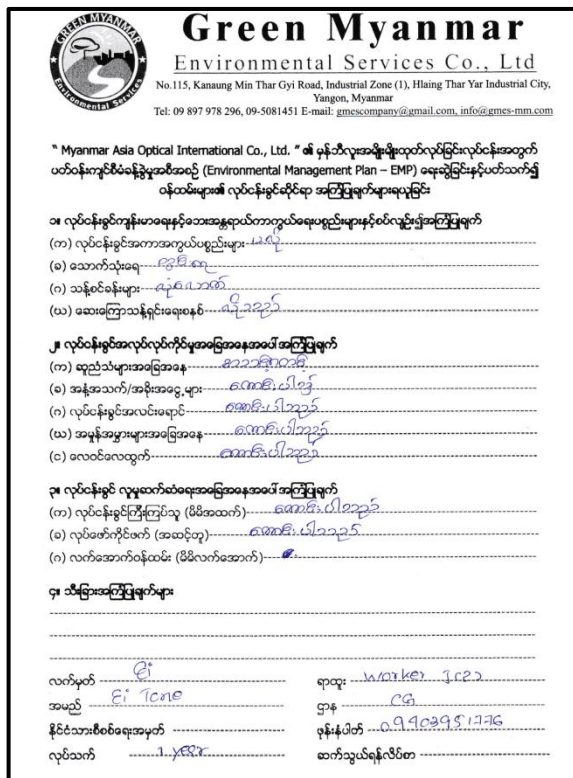 GREEN MYANMAR
Environmental Services
Green Myanmar
Environmental Services Co., Ltd
No.115, Kanaung Min Thar Gyi Road, Industrial Zone (1), Hlaing Thar Yar Industrial City,
Yangon, Myanmar
Tel: 09 897 978 296, 09-5081451 E-mail: gmescompany@gmail.com, info@gmes-mm.com
" Myanmar Asia Optical International Co., Ltd. " ၏ မှန်ဘီလူးအမျိုးမျိုးထုတ်လုပ်ခြင်းလုပ်ငန်းအတွက်
ပတ်ဝန်းကျင်စီမံခန့်ခွဲမှုအစီအစဉ် (Environmental Management Plan – EMP) ရေးဆွဲခြင်းနှင့်ပတ်သက်၍
ဝန်ထမ်းများ၏ လုပ်ငန်းခွင်ဆိုင်ရာ အကြံပြုချက်များရယူခြင်း
၁။ လုပ်ငန်းခွင်ကျန်းမာရေးနှင့်ဘေးအန္တရာယ်ကာကွယ်ရေးပစ္စည်းများနှင့်စပ်လျဉ်း၍အကြံပြုချက်
(က) လုပ်ငန်းခွင်အကာအကွယ်ပစ္စည်းများ
(ခ) သောက်သုံးရေ
(ဂ) သန့်စင်ခန်းများ လုံလောက်
(ဃ) ဆေးကြောသန့်ရှင်းရေးစနစ်
၂။ လုပ်ငန်းခွင်အလုပ်လုပ်ကိုင်မှုအခြေအနေအပေါ် အကြံပြုချက်
(က) ဆူညံသံများအခြေအနေ
(ခ) အနံ့အသက်/အခိုးအငွေ့များ ကောင်းပါသည်
(ဂ) လုပ်ငန်းခွင်အလင်းရောင် ကောင်းပါသည်
(ဃ) အမှုန်အမွှားများအခြေအနေ ကောင်းပါသည်
(င) လေဝင်လေထွက် ကောင်းပါသည်
၃။ လုပ်ငန်းခွင် လူမှုဆက်ဆံရေးအခြေအနေအပေါ် အကြံပြုချက်
(က) လုပ်ငန်းခွင်ကြီးကြပ်သူ (မိမိအထက်) ကောင်းပါသည်
(ခ) လုပ်ဖော်ကိုင်ဖက် (အဆင့်တူ) ကောင်းပါသည်
(ဂ) လက်အောက်ဝန်ထမ်း (မိမိလက်အောက်)
၄။ သီးခြားအကြံပြုချက်များ
လက်မှတ် Ei ရာထူး worker
အမည် Ei ဌာန CG
နိုင်ငံသားစိစစ်ရေးအမှတ် ဖုန်းနံပါတ် 09403951776
လုပ်သက် 1 year ဆက်သွယ်ရန်လိပ်စာ